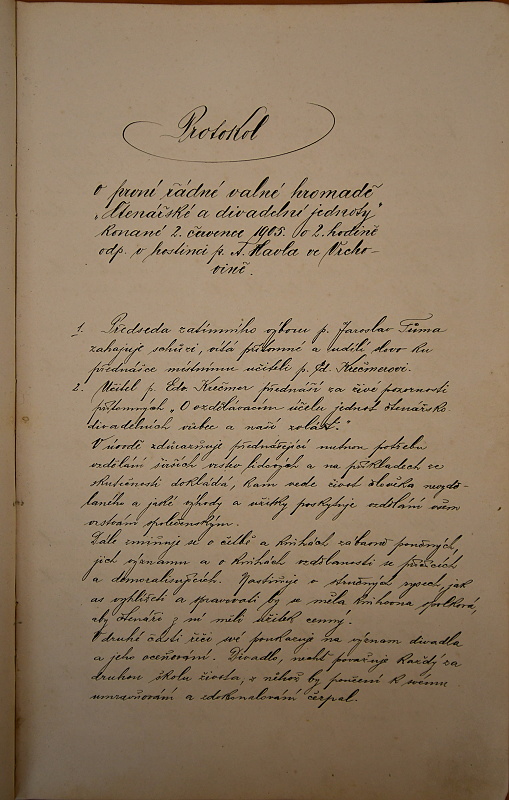 Protokol
o první řádné valné hromadě
„Čtenářské a divadelní jednoty“
konané 2. července 1905. o 2. hodině
odp. v hostinci p. A. Havla ve Vrcho-
vině.
1. Předseda zatímního výboru p. Jaroslav Tůma
zahajuje schůzi, vítá přítomné a udělí slovo ku
přednášce místnímu učiteli p. Ed. Kučmerovi.
2. Učitel p. Edv. Kučmer přednáší za živé pozornosti
přítomných „O vzdělávacím účelu jednot čtenářsko-
divadelních vůbec a naší zvlášť.“
V úvodě zdůrazňuje přednášející nutnou potřebu
vzdělání širších vrstev lidových a na příkladech ve
skutečnosti dokládá, kam vede život člověka nevzdě-
laného a jaké výhody a užitky poskytuje vzdělání všem
vrstvám společenským.
Dále zmiňuje se o četbě a knihách zábavně poučných,
jich významu a o knihách vzdělanosti se příčících
a demoralisujících. Nastiňuje v stručných rysech, jak
as vyhlížeti a spravovati by se měla knihovna spolková,
aby čtenáři z ní měli užitek cenný.
V druhé části řeči své poukazuje na význam divadla
a jeho oceňování. Divadlo, nechť považuje každý za
druhou školu života, z něhož by poučení k svému
umravňování a zdokonalování čerpal.